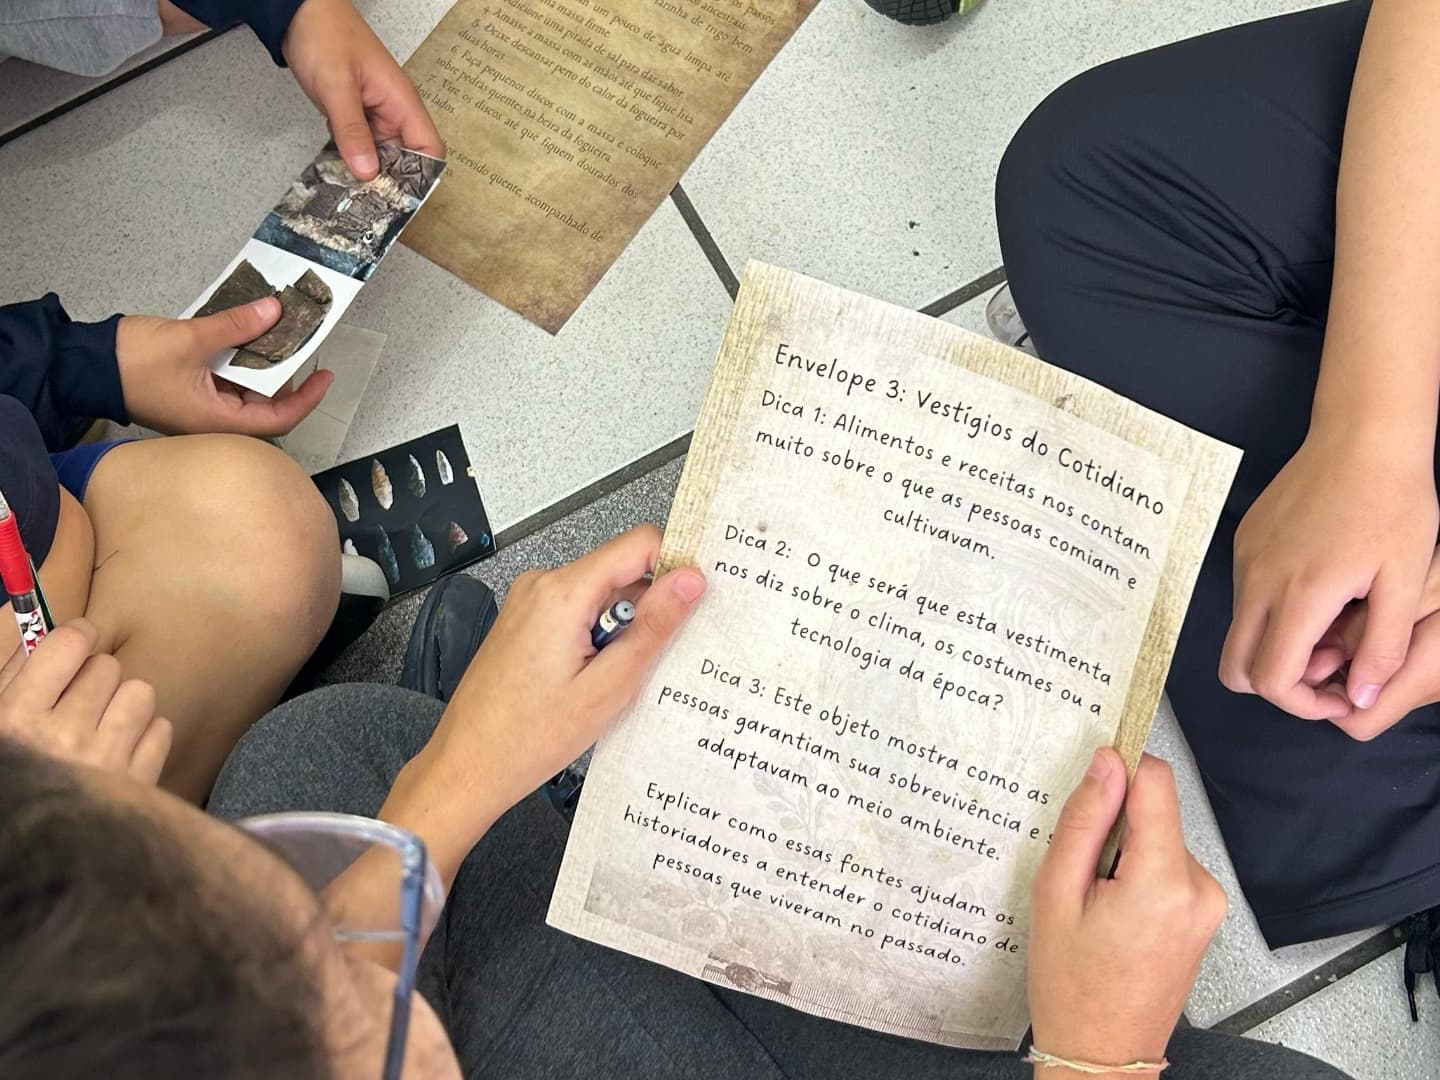 os passos
ancestrais.
farinha de trigo bem
um pouco de água limpa até
massa firme.
Adicione uma pitada de sal para dar sabor.
Amasse a massa com as mãos até que fique lisa.
5. Deixe descansar perto do calor da fogueira por
duas horas.
6. Faça pequenos discos com a massa e coloque
sobre pedras quentes na beira da fogueira.
7. Vire os discos até que fiquem dourados dos
dois lados.
servido quente, acompanhado de
Envelope 3: Vestígios do Cotidiano
Dica 1: Alimentos e receitas nos contam
muito sobre o que as pessoas comiam e
cultivavam.
Dica 2: O que será que esta vestimenta
nos diz sobre o clima, os costumes ou a
tecnologia da época?
Dica 3: Este objeto mostra como as
pessoas garantiam sua sobrevivência e s
adaptavam ao meio ambiente.
Explicar como essas fontes ajudam os
historiadores a entender o cotidiano de
pessoas que viveram no passado.